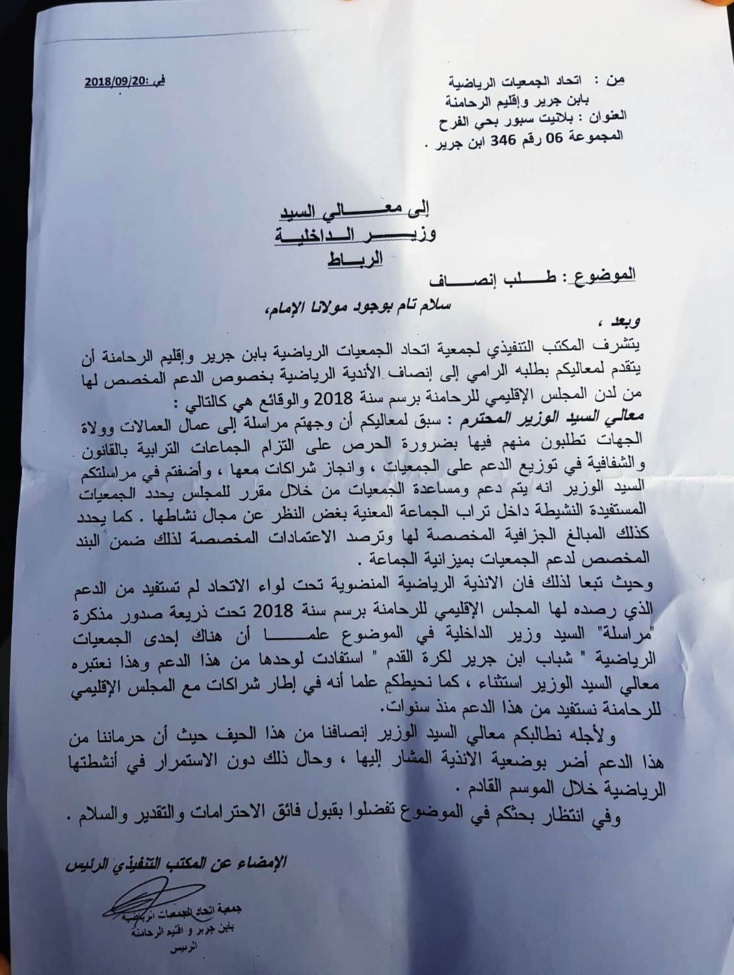 من : اتحاد الجمعيات الرياضية
في :2018/09/20
بابن جرير وإقليم الرحامنة
العنوان : بلانيت سبور بحي الفرح
المجموعة 06 رقم 346 ابن جرير .
إلى معـــالي السيد
وزيـــر الـداخليـة
الربـاط
الموضوع : طـــلب إنصـــاف
سلام تام بوجود مولانا الإمام،
وبعد ،
يتشرف المكتب التنفيذي لجمعية اتحاد الجمعيات الرياضية بابن جرير وإقليم الرحامنة أن
يتقدم لمعاليكم بطلبه الرامي إلى إنصاف الأندية الرياضية بخصوص الدعم المخصص لها
من لدن المجلس الإقليمي للرحامنة برسم سنة 2018 والوقائع هي كالتالي :
معالي السيد الوزير المحترم : سبق لمعاليكم أن وجهتم مراسلة إلى عمال العمالات وولاة
الجهات تطلبون منهم فيها بضرورة الحرص على التزام الجماعات الترابية بالقانون
والشفافية في توزيع الدعم على الجمعيات ، وانجاز شراكات معها ، وأضفتم في مراسلتكم
السيد الوزير انه يتم دعم ومساعدة الجمعيات من خلال مقرر للمجلس يحدد الجمعيات
المستفيدة النشيطة داخل تراب الجماعة المعنية بغض النظر عن مجال نشاطها . كما يحدد
كذلك المبالغ الجزافية المخصصة لها وترصد الاعتمادات المخصصة لذلك ضمن البند
المخصص لدعم الجمعيات بميزانية الجماعة .
وحيث تبعا لذلك فان الاندية الرياضية المنضوية تحت لواء الاتحاد لم تستفيد من الدعم
الذي رصده لها المجلس الإقليمي للرحامنة برسم سنة 2018 تحت ذريعة صدور مذكرة
"مراسلة" السيد وزير الداخلية في الموضوع علمـــا أن هناك إحدى الجمعيات
الرياضية " شباب ابن جرير لكرة القدم " استفادت لوحدها من هذا الدعم وهذا نعتبره
معالي السيد الوزير استثناء ، كما نحيطكم علما أنه في إطار شراكات مع المجلس الإقليمي
للرحامنة نستفيد من هذا الدعم منذ سنوات.
ولأجله نطالبكم معالي السيد الوزير إنصافنا من هذا الحيف حيث أن حرماننا من
هذا الدعم أضر بوضعية الاندية المشار إليها ، وحال ذلك دون الاستمرار في أنشطتها
الرياضية خلال الموسم القادم .
وفي انتظار بحثكم في الموضوع تفضلوا بقبول فائق الاحترامات والتقدير والسلام .
الإمضاء عن المكتب التنفيذي الرئيس
جمعية اتحاد الجمعيات الرياضية
بابن جرير و اقليم الرحامنة
الرئيس